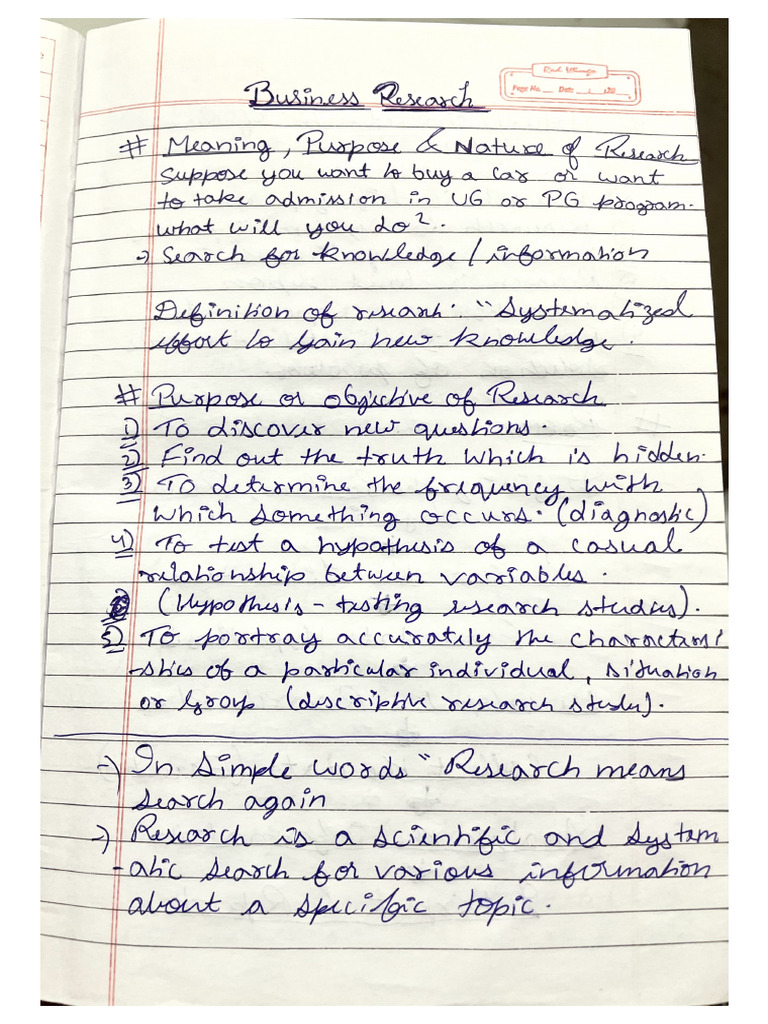 Business Research
Page No. Date
# Meaning, Purpose & Nature of Research
Suppose you want to buy a car or want
to take admission in UG or PG program.
what will you do?
→ Search for knowledge / information
Definition of research: "Systematized
effort to gain new knowledge.
# Purpose or objective of Research
1) To discover new questions.
2) Find out the truth which is hidden.
3) To determine the frequency with
which something occurs. (diagnostic)
4) To test a hypothesis of a casual
relationship between variables.
(Hypothesis - testing research studies).
5) To portray accurately the characteri
-stics of a particular individual, situation
or group (descriptive research study).
→ In simple words " Research means
search again
→ Research is a scientific and system
-atic search for various information
about a specific topic.